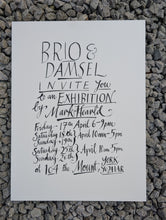 BRIO &
DAMSEL
INVITE You
to an EXHIBITION
by Mark Hearld
Friday 17th April 6-9pm
Saturday 18th
Sunday 19th } April 10am-5pm
Saturday 25th
Sunday 26th } April 11am 5pm
at 164 the Mount YORK